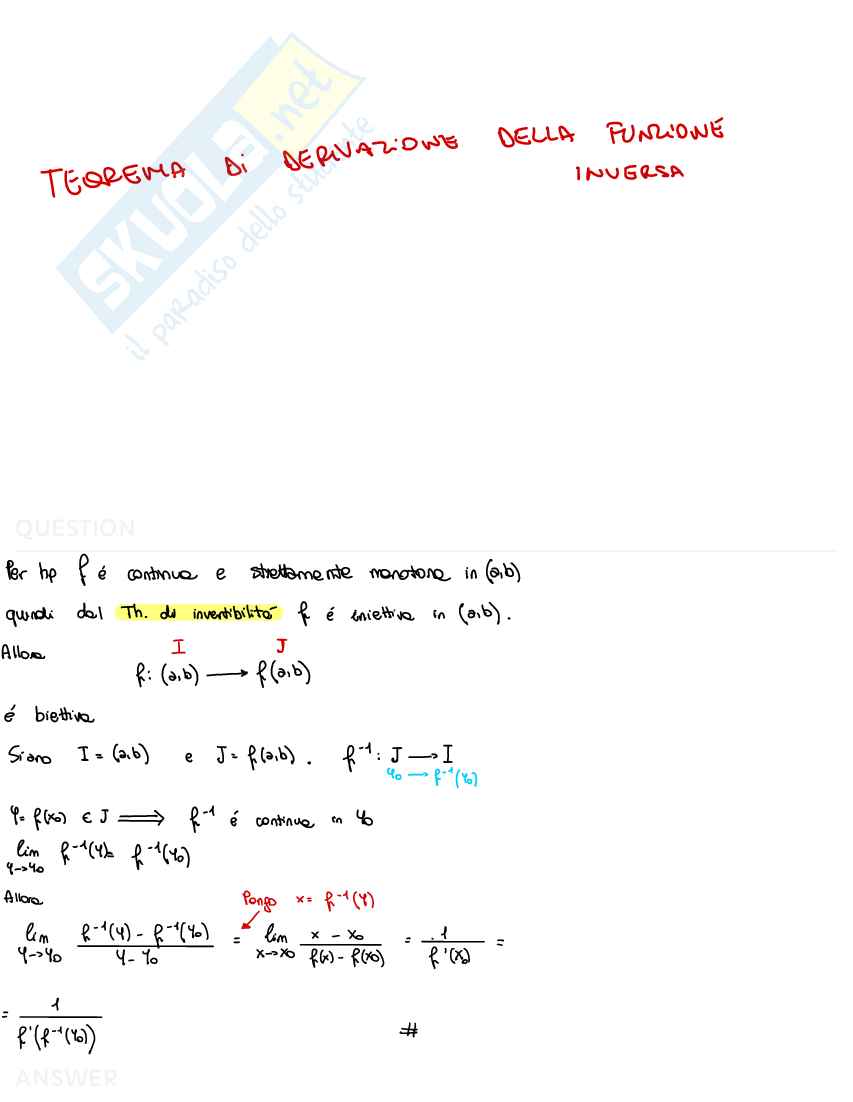 TEOREMA Di DERIVAZIONE DELLA FUNZIONE
INVERSA
SKUOLA.net
il paradiso dello studente
QUESTION
Per hp f é continua e strettamente monotona in (a,b)
quindi dal Th. di invertibilitá f é iniettiva in (a,b).
Allora I J
f: (a,b) ⟶ f(a,b)
é biettiva
Siano I = (a,b) e J = f(a,b). f⁻¹: J ⟶ I
y₀ ⟶ f⁻¹(y₀)
y = f(x₀) ∈ J ⟹ f⁻¹ é continua in y₀
lim y→y₀ f⁻¹(y) = f⁻¹(y₀)
Allora Pongo x = f⁻¹(y)
lim y→y₀ (f⁻¹(y) - f⁻¹(y₀)) / (y - y₀) = lim x→x₀ (x - x₀) / (f(x) - f(x₀)) = 1 / f'(x₀) =
= 1 / f'(f⁻¹(y₀)) #
ANSWER